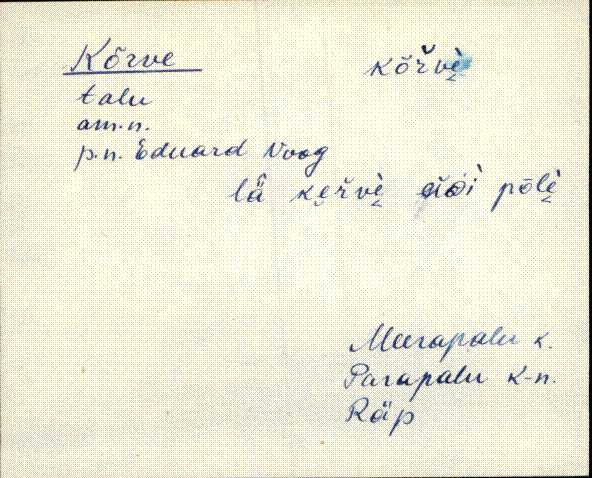 Kõrve
kõr̆vè̬
talu
am.n.
p.n. Eduard Voog
lä ke̬r̆vè̬ pōlè̬
Meerapalu k.
Parapalu k-n.
Räp